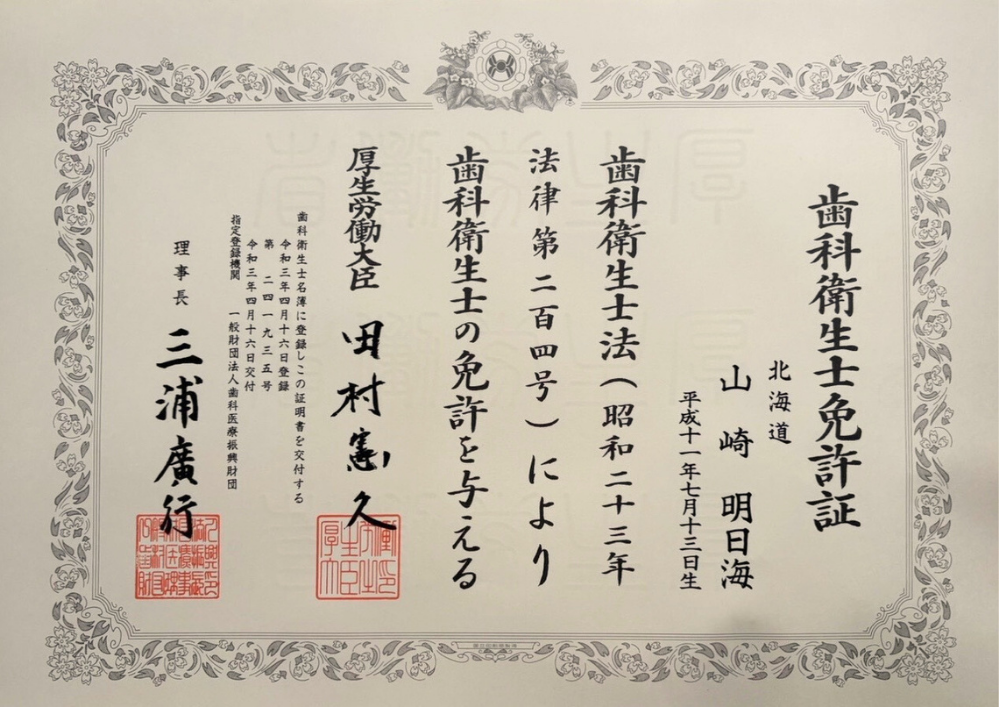 歯科衛生士免許証
北海道
山崎 明日海
平成十一年七月十三日生
歯科衛生士法(昭和二十三年
法律第二百四号)により
歯科衛生士の免許を与える
厚生労働大臣 田村憲久
歯科衛生士名簿に登録しこの証明書を交付する
令和三年四月十六日登録
第 二四一九三五号
令和三年四月十六日交付
指定登録機関 一般財団法人歯科医療振興財団
理事長 三浦廣行